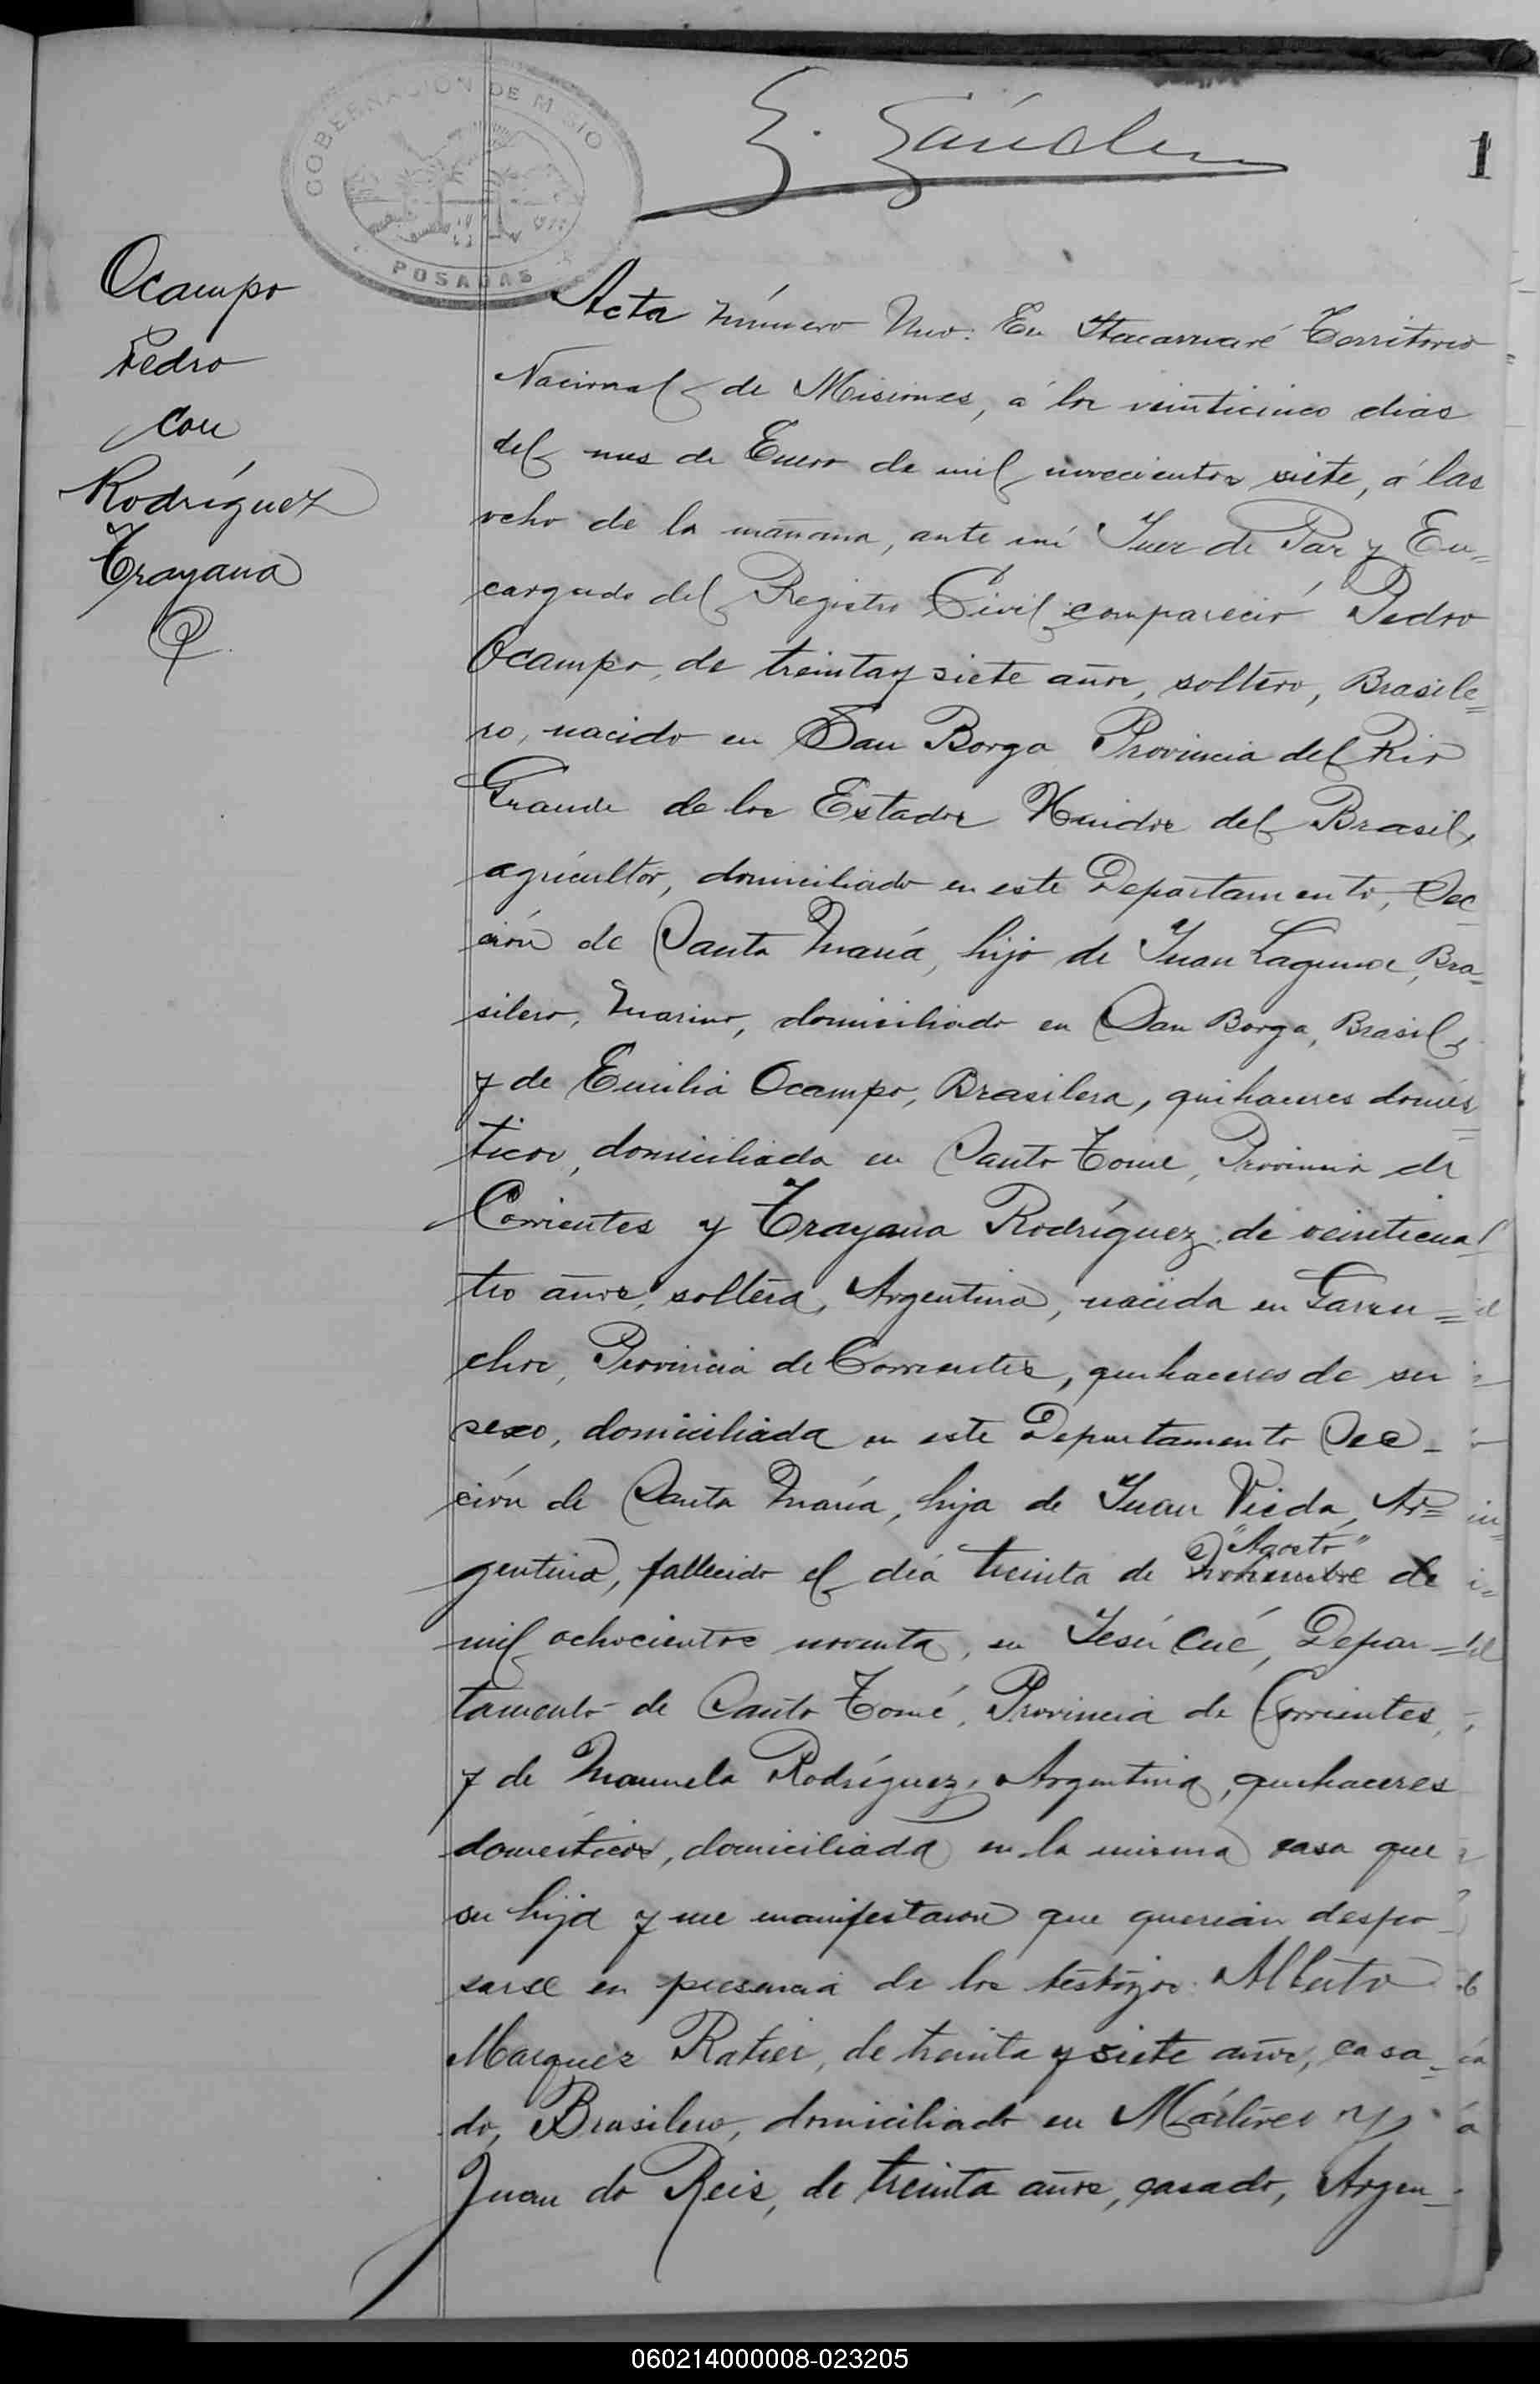 GOBERNACION DE MISIO
POSADAS
1
Ocampo
Pedro
con
Rodríguez
Trayana
Acta número Uno: En Itacaruaré Territorio
Nacional de Misiones, á los veinticinco dias
del mes de Enero de mil novecientos siete, á las
ocho de la mañana, ante mí Juez de Paz y En=
cargado del Registro Civil compareció Pedro
Ocampo, de treinta y siete años, soltero, Brasile=
ro, nacido en San Borga Provincia del Rio
Grande de los Estados Unidos del Brasil,
agricultor, domiciliado en este Departamento, Sec
ción de Santa María, hijo de Juan Lagunse, Bra=
silero, Marino, domiciliado en San Borga, Brasil,
y de Emilia Ocampo, Brasilera, quehaceres domés=
ticos, domiciliada en Santo Tomé, Provincia de
Corrientes y Trayana Rodríguez, de veinticua
tro años, soltera, Argentina, nacida en Garru=
chos, Provincia de Corrientes, quehaceres de su
sexo, domiciliada en este Departamento Sec-
ción de Santa María, hija de Juan Vieda, Ar=
"Agosto"
gentino, fallecido el día treinta de Noviembre de
mil ochocientos noventa, en Jesús Cué, Depar=
tamento de Santo Tomé, Provincia de Corrientes,
y de Manuela Rodríguez, Argentina, quehaceres
domésticos, domiciliada en la misma casa que
su hija y me manifestaron que querían despo-
sarse en presencia de los testigos: Alberto
Marquez Ratier, de treinta y siete años, casa-
do, Brasilero, domiciliado en Mártires y
Juan do Reis, de treinta años, casado, Argen-
060214000008-023205